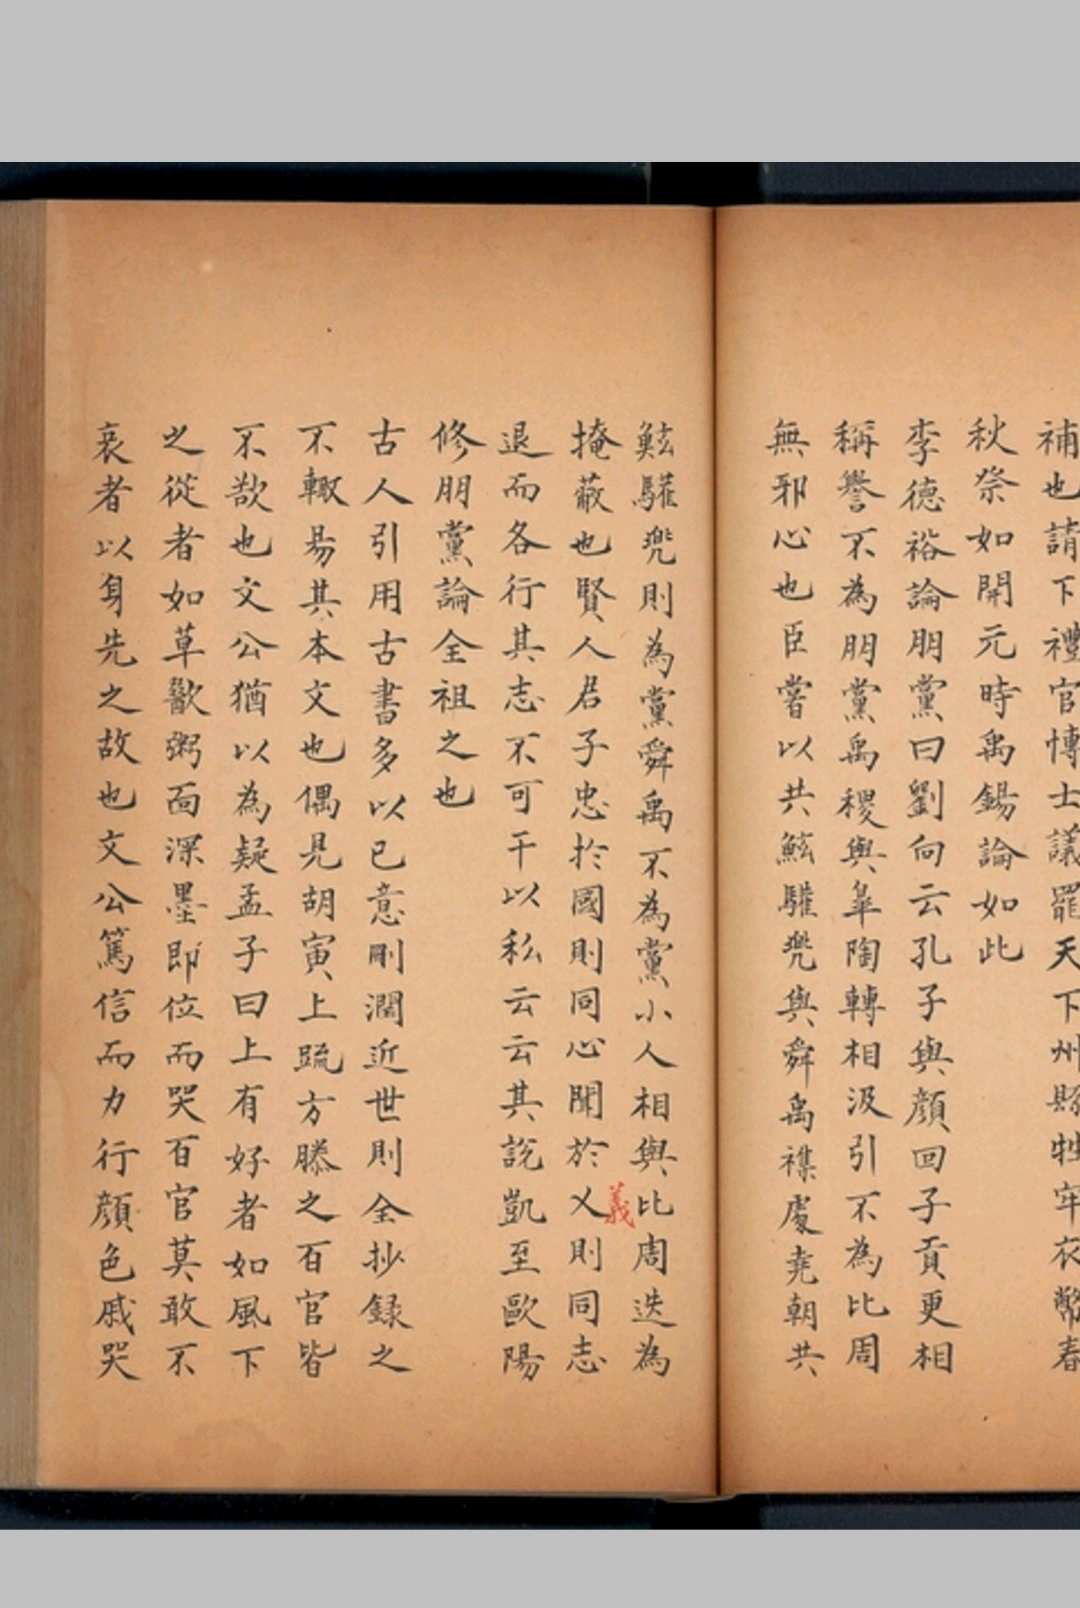 補也請下禮官博士議罷天下州縣牲牢衣幣春
秋祭如開元時禹錫論如此
李德裕論朋黨曰劉向云孔子與顏回子貢更相
稱譽不為朋黨禹稷與皐陶轉相汲引不為比周
無邪心也臣嘗以共鮌驩兠與舜禹襍處堯朝共
鮌驩兠則為黨舜禹不為黨小人相與比周迭為
掩蔽也賢人君子忠於國則同心聞於义則同志
義
退而各行其志不可干以私云云其說凱至歐陽
修朋黨論全祖之也
古人引用古書多以已意刪潤近世則全抄録之
不輙易其本文也偶見胡寅上䟽方滕之百官皆
不㰸也文公猶以為疑孟子曰上有好者如風下
之從者如草歠粥面深墨即位而哭百官莫敢不
哀者以身先之故也文公篤信而力行顏色戚哭